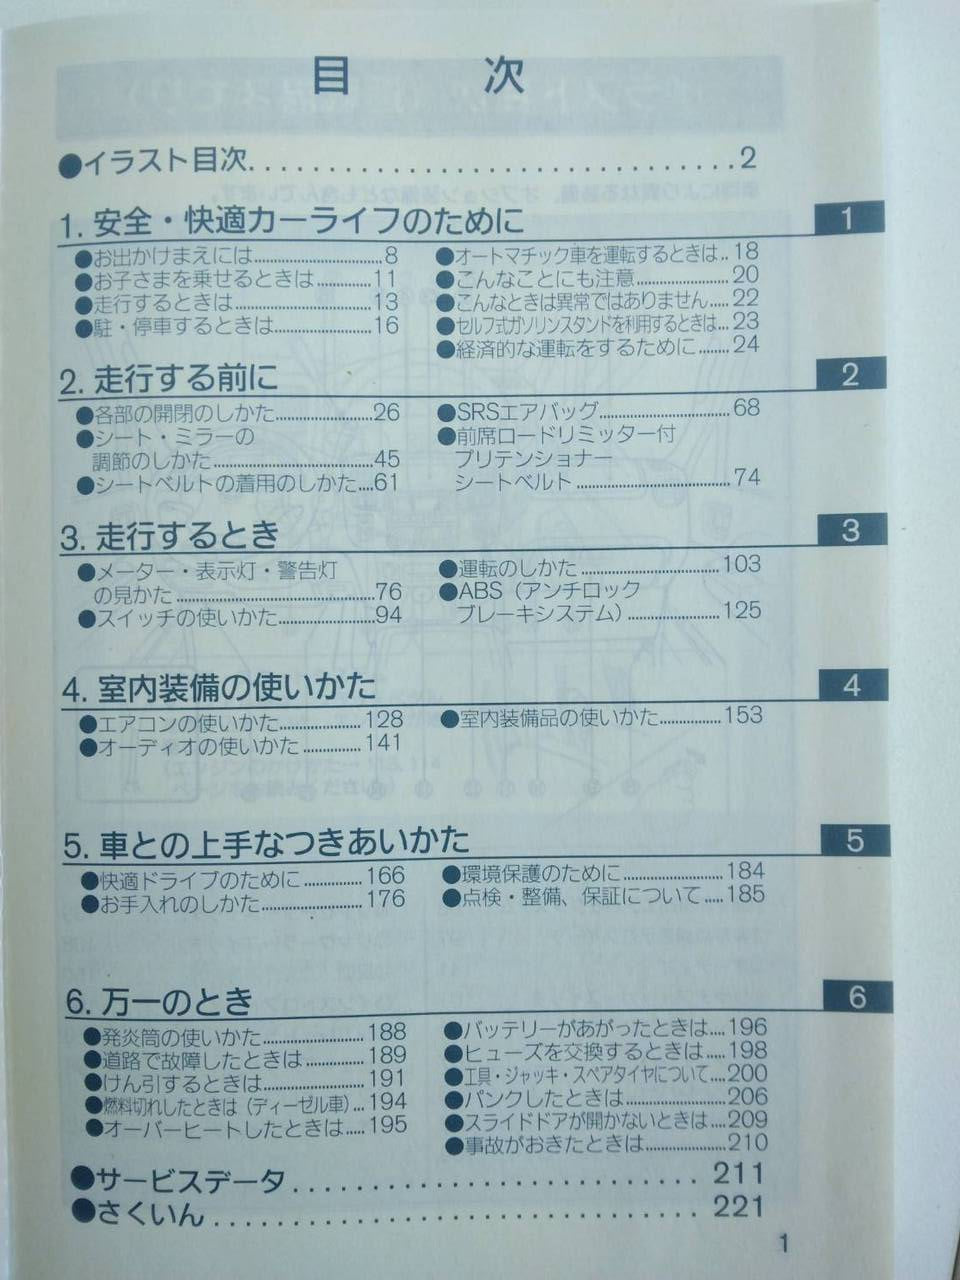 目　次
●イラスト目次................................2
1. 安全・快適カーライフのために 1
●お出かけまえには................8
●お子さまを乗せるときは.......11
●走行するときは..................13
●駐・停車するときは.............16
●オートマチック車を運転するときは..18
●こんなことにも注意............20
●こんなときは異常ではありません....22
●セルフ式ガソリンスタンドを利用するときは...23
●経済的な運転をするために........24
2. 走行する前に 2
●各部の開閉のしかた............26
●シート・ミラーの
調節のしかた......................45
●シートベルトの着用のしかた....61
●SRSエアバッグ..................68
●前席ロードリミッター付
プリテンショナー
シートベルト......................74
3. 走行するとき 3
●メーター・表示灯・警告灯
の見かた............................76
●スイッチの使いかた............94
●運転のしかた....................103
●ABS（アンチロック
ブレーキシステム）..............125
4. 室内装備の使いかた 4
●エアコンの使いかた............128
●オーディオの使いかた.........141
●室内装備品の使いかた.........153
5. 車との上手なつきあいかた 5
●快適ドライブのために.........166
●お手入れのしかた..............176
●環境保護のために..............184
●点検・整備、保証について.....185
6. 万一のとき 6
●発炎筒の使いかた..............188
●道路で故障したときは.........189
●けん引するときは..............191
●燃料切れしたときは（ディーゼル車）...194
●オーバーヒートしたときは.....195
●バッテリーがあがったときは....196
●ヒューズを交換するときは.....198
●工具・ジャッキ・スペアタイヤについて....200
●パンクしたときは..............206
●スライドドアが開かないときは...209
●事故がおきたときは............210
●サービスデータ............................211
●さくいん..................................221
1